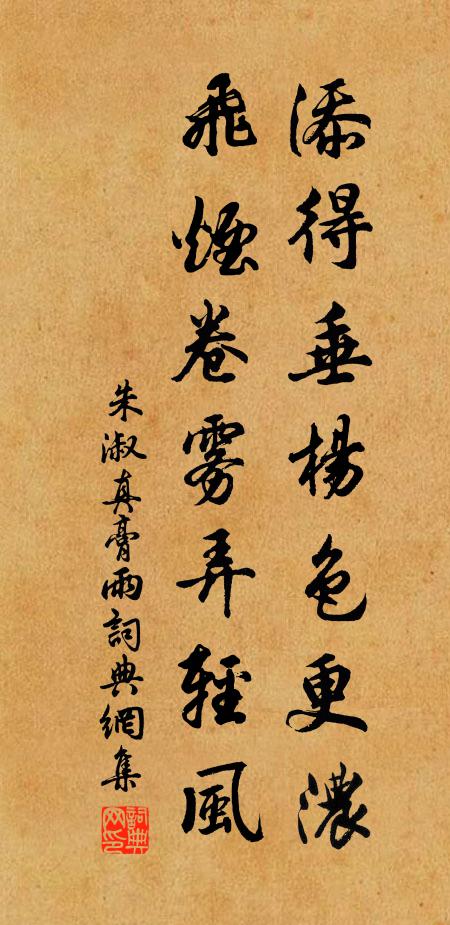 添得垂楊色更濃
飛煙卷雾弄輕風
朱淑真膏雨詞典網集
詞典网印